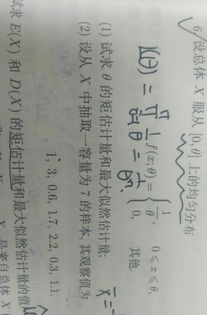 6. 设总体 X 服从 [0, θ] 上的均匀分布
f(x; θ) = { 1/θ, 0 ≤ x ≤ θ,
0, 其他.
(1) 试求 θ 的矩估计量和最大似然估计量;
(2) 设从 X 中抽取一容量为 7 的样本, 其观察值为
1, 3, 0.6, 1.7, 2.2, 0.3, 1.1.
试求 E(X) 和 D(X) 的矩估计和最大似然估计量的值